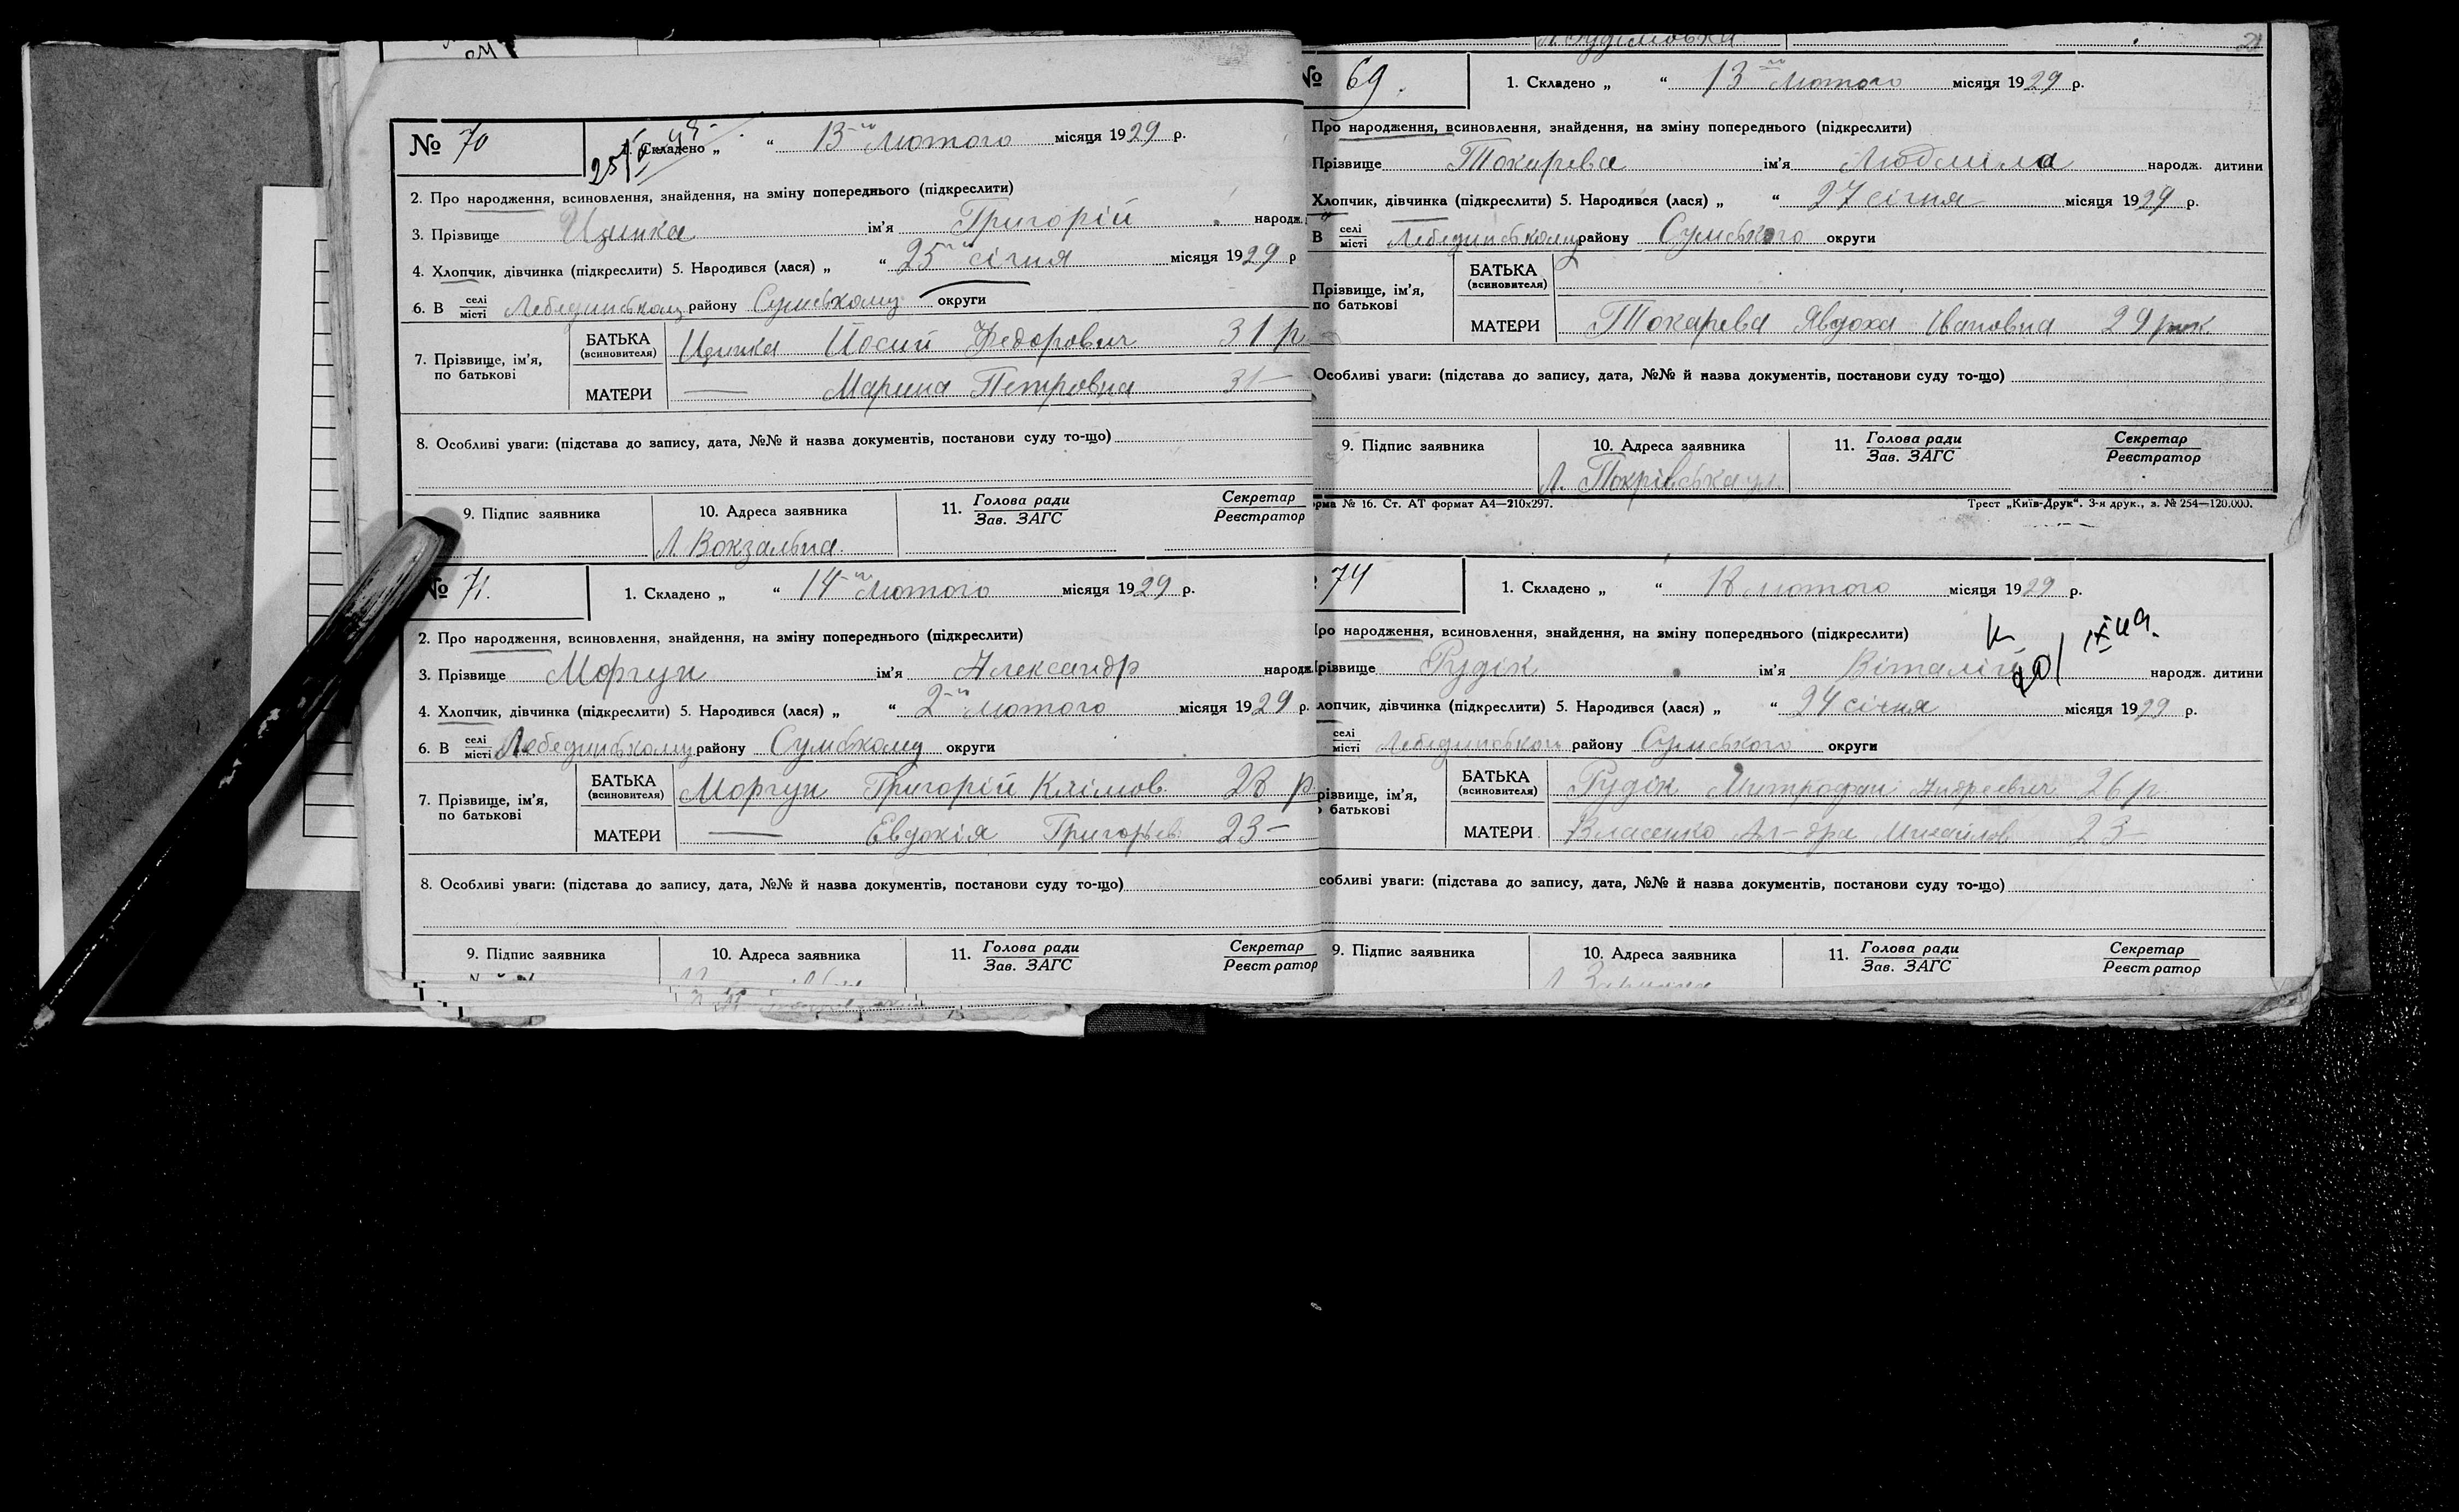 № 70
1. Складено „ “ 13-го Лютого місяця 1929 р.
2. Про народження, всиновлення, знайдення, на зміну попереднього (підкреслити)
3. Прізвище ім'я Григорій народж.
4. Хлопчик, дівчинка (підкреслити) 5. Народився (лася) „ “ 25 січня місяця 1929 р
6. В селі/місті Лебединському району Сумському округи
7. Прізвище, ім'я, по батькові
БАТЬКА (всиновителя) Йосип Федорович 31 р
МАТЕРИ — Марина Петровна 31 —
8. Особливі уваги: (підстава до запису, дата, №№ й назва документів, постанови суду то-що)
9. Підпис заявника 10. Адреса заявника 11. Голова ради/Зав. ЗАГС Секретар/Реєстратор
Л. Вокзальна
№ 71.
1. Складено „ “ 14-го Лютого місяця 1929 р.
2. Про народження, всиновлення, знайдення, на зміну попереднього (підкреслити)
3. Прізвище Моргун ім'я Александр народж.
4. Хлопчик, дівчинка (підкреслити) 5. Народився (лася) „ “ 2-го Лютого місяця 1929 р.
6. В селі/місті Лебединському району Сумському округи
7. Прізвище, ім'я, по батькові
БАТЬКА (всиновителя) Моргун Григорій Клімов. 28 р
МАТЕРИ — Евдокія Григорьев. 23 —
8. Особливі уваги: (підстава до запису, дата, №№ й назва документів, постанови суду то-що)
9. Підпис заявника 10. Адреса заявника 11. Голова ради/Зав. ЗАГС Секретар/Реєстратор
№ 69.
1. Складено „ “ 13 го Лютого місяця 1929 р.
Про народження, всиновлення, знайдення, на зміну попереднього (підкреслити)
Прізвище Токарева ім'я Людмила народж. дитини
Хлопчик, дівчинка (підкреслити) 5. Народився (лася) „ “ 27 січня місяця 1929 р.
В селі/місті Лебединському району Сумського округи
Прізвище, ім'я, по батькові
БАТЬКА (всиновителя)
МАТЕРИ Токарева Явдоха Івановна 29 рок
Особливі уваги: (підстава до запису, дата, №№ й назва документів, постанови суду то-що)
9. Підпис заявника 10. Адреса заявника 11. Голова ради/Зав. ЗАГС Секретар/Реєстратор
Л. Покрівська ул.
рма № 16. Ст. АТ формат А4—210х297. Трест „Київ-Друк“. 3-я друк., з. № 254—120.000.
74
1. Складено „ “ 18 лютого місяця 1929 р.
ро народження, всиновлення, знайдення, на зміну попереднього (підкреслити)
різвище Рудік ім'я Віталій народж. дитини
лопчик, дівчинка (підкреслити) 5. Народився (лася) „ “ 24 січня місяця 1929 р.
селі/місті Лебединськом району Сумського округи
різвище, ім'я, батькові
БАТЬКА (всиновителя) Рудік Митрофан Андреевич 26 р
МАТЕРИ Власенко Ал-дра Михайлов 23 —
собливі уваги: (підстава до запису, дата, №№ й назва документів, постанови суду то-що)
9. Підпис заявника 10. Адреса заявника 11. Голова ради/Зав. ЗАГС Секретар/Реєстратор